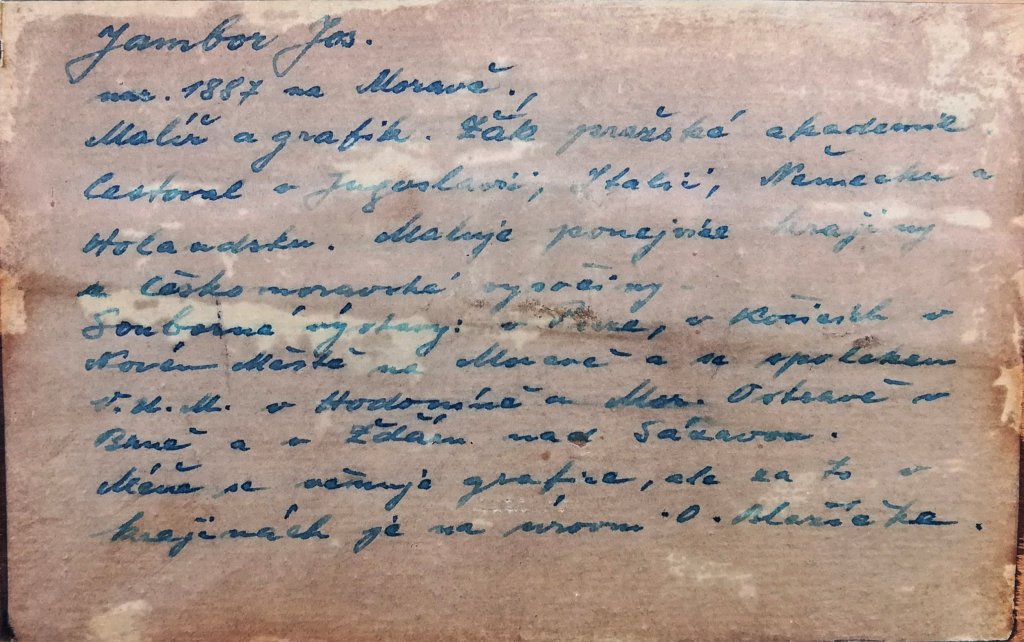 Jambor Jos.
nar. 1887 na Moravě.,
Malíř a grafik. Žák pražské akademie.
Cestoval v Jugoslavii, Italii, Německu a
Holandsku. Maluje ponejvíce krajiny
z Českomoravské vysočiny.
Souborné výstavy: v Praze, v Košicích v
Novém Městě na Moravě a se spolekem
V.U.M. v Hodoníně a Mor. Ostravě v
Brně a v Žďáru nad Sázavou.
Méně se věnuje grafice, ale za to v
krajinách je na úrovni O. Blažíčka.